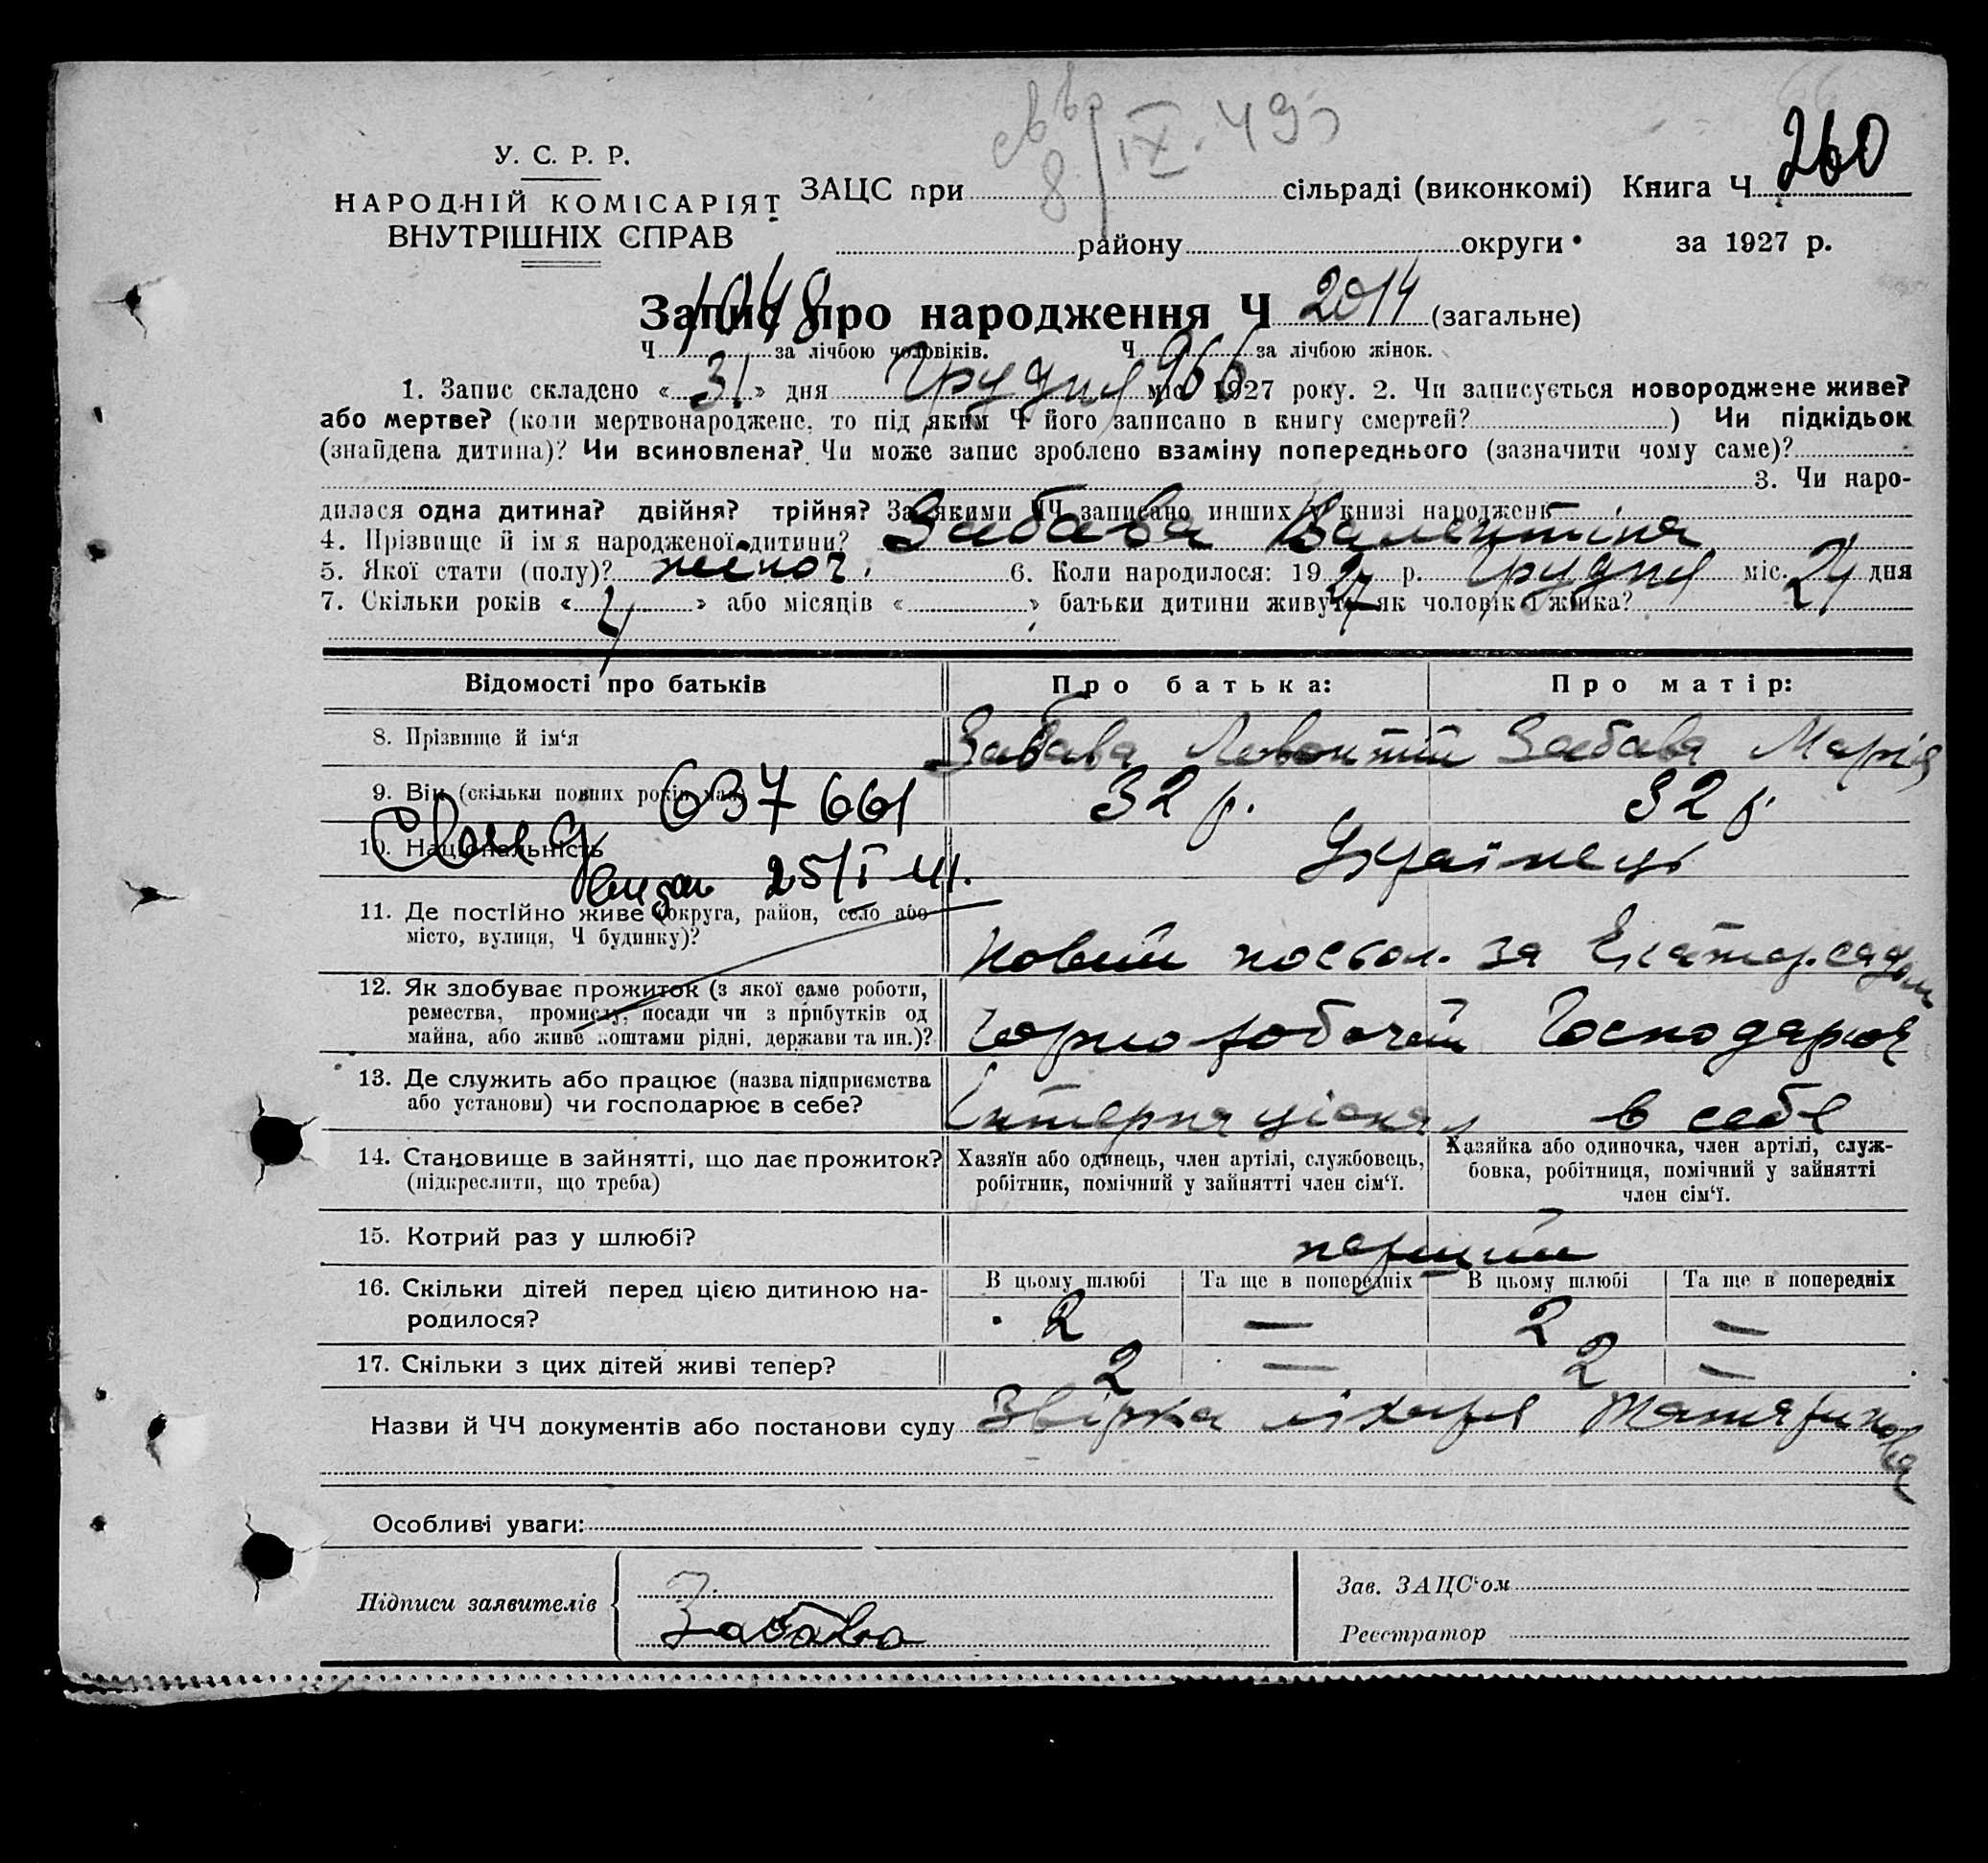 8/IX. 49
У. С. Р. Р.
НАРОДНІЙ КОМІСАРІЯТ
ВНУТРІШНІХ СПРАВ
ЗАЦС при сільраді (виконкомі) Книга Ч 260
району округи за 1927 р.
Запис про народження Ч 2014 (загальне)
Ч 1048 за лічбою чоловіків. Ч 966 за лічбою жінок.
1. Запис складено «31» дня Грудня міс. 1927 року. 2. Чи записується новороджене живе?
або мертве? (коли мертвонароджене, то під яким Ч його записано в книгу смертей? ) Чи підкідьок
(знайдена дитина)? Чи всиновлена? Чи може запис зроблено взаміну попереднього (зазначити чому саме)?
3. Чи наро-
дилася одна дитина? двійня? трійня? За якими ЧЧ записано инших у книзі народжень
4. Прізвище й ім'я народженої дитини? Забава Валентина
5. Якої стати (полу)? жіноч. 6. Коли народилося: 1927 р. Грудня міс. 24 дня
7. Скільки років « 4 » або місяців « » батьки дитини живуть як чоловік і жінка?
Відомості про батьків Про батька: Про матір:
8. Прізвище й ім'я Забава Левонтій Забава Марія
9. Вік (скільки повних років має) 32 р. 32 р.
637661
10. Національність Українець
видан 25/I 41.
11. Де постійно живе (округа, район, село або
місто, вулиця, Ч будинку)? Новий посьол. за
12. Як здобуває прожиток (з якої саме роботи,
ремества, промислу, посади чи з прибутків од
майна, або живе коштами рідні, держави та ин.)? Чорноробочий Господарює
13. Де служить або працює (назва підприємства
або установи) чи господарює в себе? Интернаціонал в себе
14. Становище в зайнятті, що дає прожиток?
(підкреслити, що треба)
Хазяїн або одинець, член артілі, службовець,
робітник, помічний у зайнятті член сім'ї.
Хазяйка або одиночка, член артілі, служ-
бовка, робітниця, помічний у зайнятті
член сім'ї.
15. Котрий раз у шлюбі? перший
В цьому шлюбі Та ще в попередніх В цьому шлюбі Та ще в попередніх
16. Скільки дітей перед цією дитиною на-
родилося? 2 — 2 —
17. Скільки з цих дітей живі тепер? 2 — 2 —
Назви й ЧЧ документів або постанови суду Звірка лікаря
Особливі уваги:
Підписи заявителів Забава
Зав. ЗАЦС'ом
Реєстратор